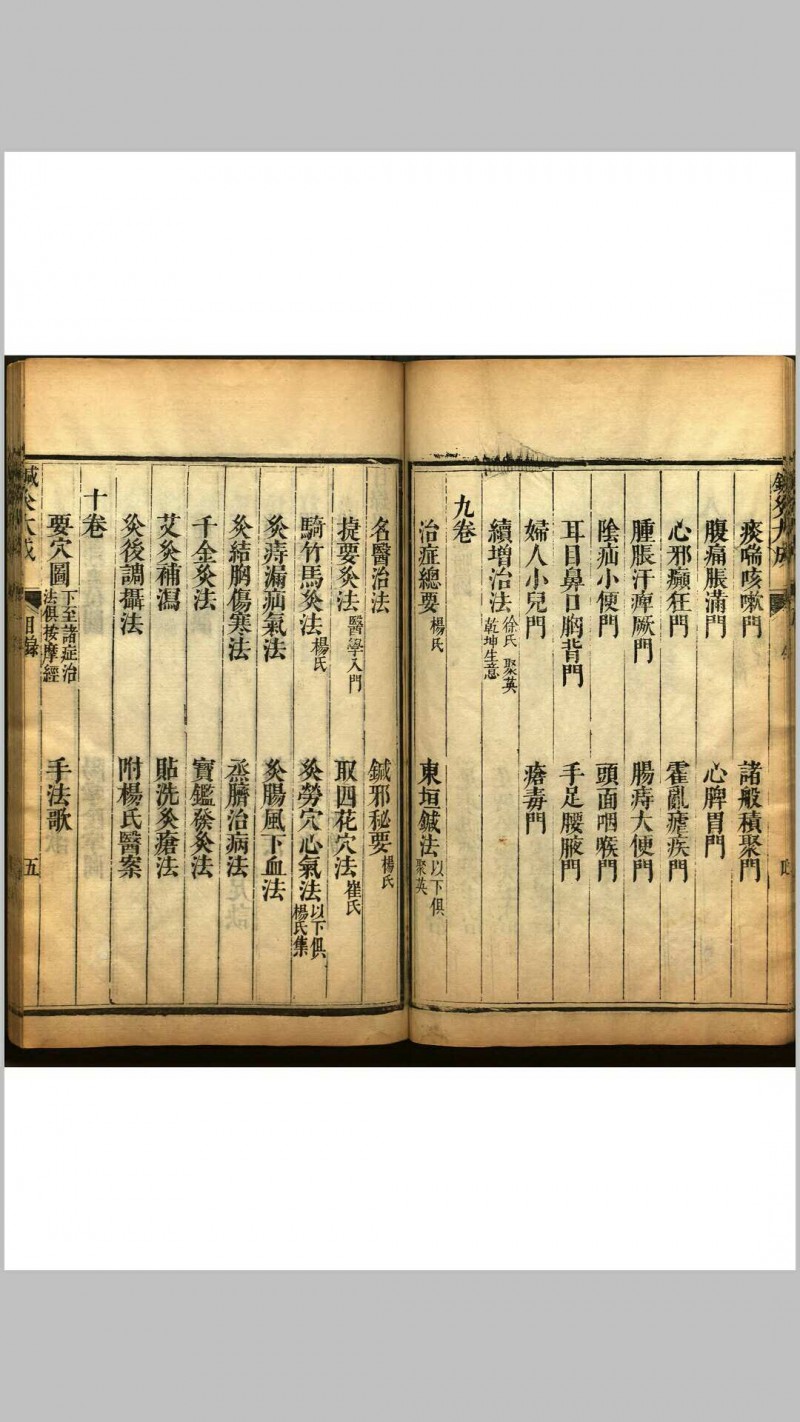 鍼灸大成
痰喘咳嗽門 諸般積聚門
腹痛脹滿門 心脾胃門
心邪癲狂門 霍亂瘧疾門
腫脹汗痺厥門 腸痔大便門
陰疝小便門 頭面咽喉門
耳目鼻口胸背門 手足腰腋門
婦人小兒門 瘡毒門
續增治法 徐氏 聚英 乾坤生意
九卷
治症總要 楊氏 東垣鍼法 以下俱聚英
名醫治法 鍼邪秘要 楊氏
捷要灸法 醫學入門 取四花穴法 崔氏
騎竹馬灸法 楊氏 灸勞穴心氣法 以下俱楊氏集
灸痔漏疝氣法 灸腸風下血法
灸結胸傷寒法 烝臍治病法
千金灸法 寶鑑發灸法
艾灸補瀉 貼洗灸瘡法
灸後調攝法 附楊氏醫案
十卷
要穴圖 下至諸症治法俱按摩經 手法歌
鍼灸大成 目錄 五